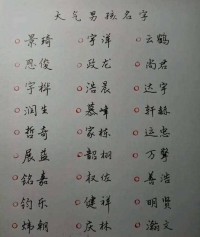 大气男孩名字
景琦 宇洋 云鹤
恩俊 政龙 尚君
宇桦 浩晨 达宇
润生 慕峰 轩赫
哲奇 家栋 远忠
展益 韶栩 万馨
铭嘉 权佐 善浩
钧乐 健祥 明贤
炜朝 庆林 瀚文